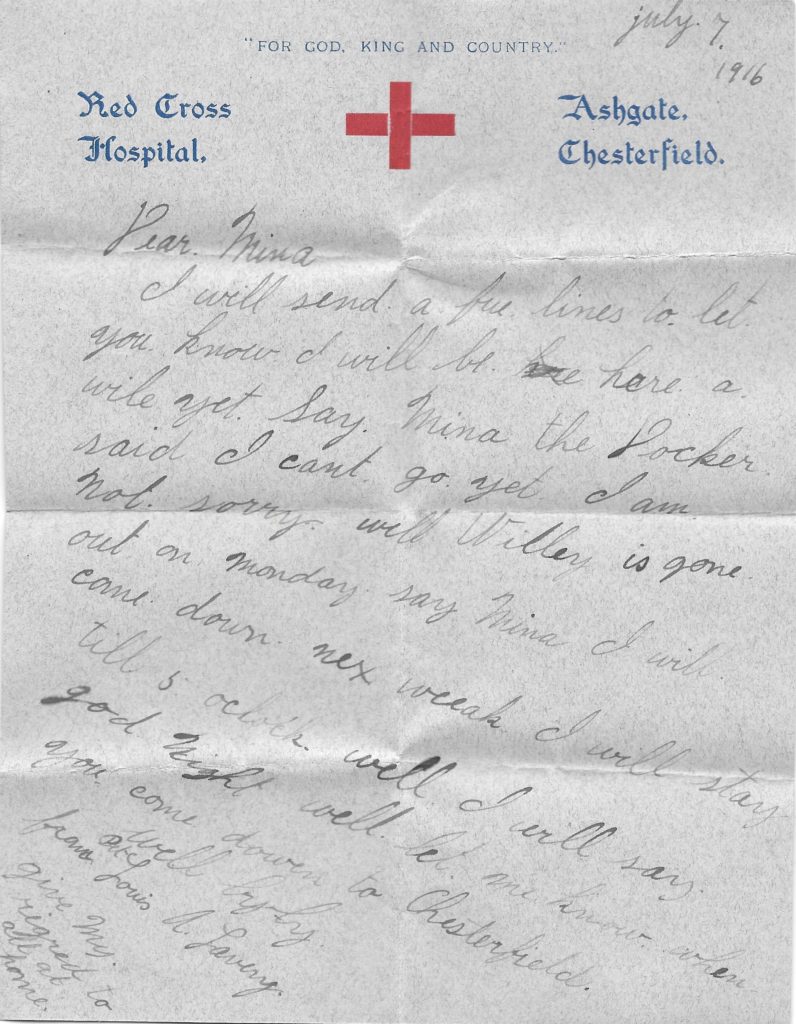 "FOR GOD, KING AND COUNTRY."
july. 7.
1916
Red Cross
Hospital.
Ashgate.
Chesterfield.
Dear. Mina
I will send. a fue. lines to. let.
you. know I will be. here. a.
wile yet. Say. Mina the Docker.
said I cant. go. yet. I am.
not. sorry. will Willey is gone.
out on monday. say Mina I will
come. down. nex weeak. I will stay
till 5 oclock. well I will say.
god Night well. let. me know. when
you. come down to Chesterfield.
well by by.
from Louis A. Lavery.
give My.
regred to
all at
home.